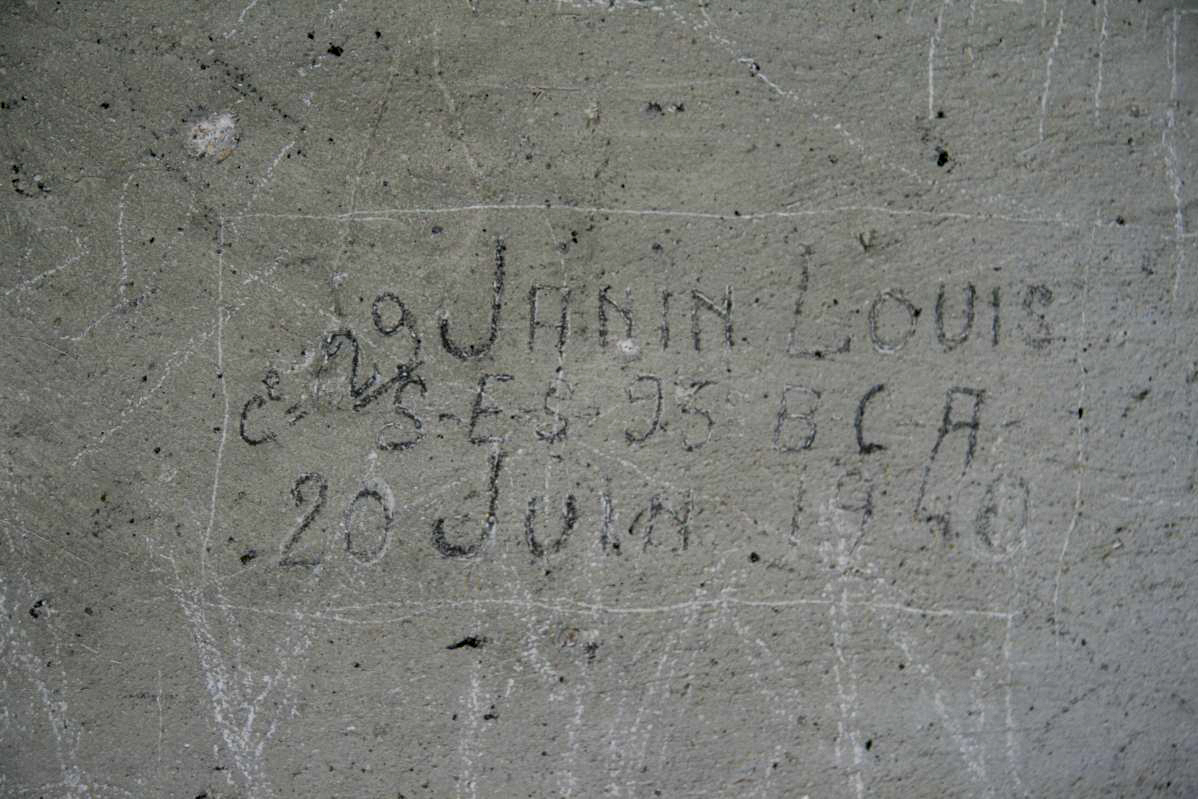 JANIN LOUIS
Cie 29 S-E-S- 93 BCA-
20 JUIN 1940